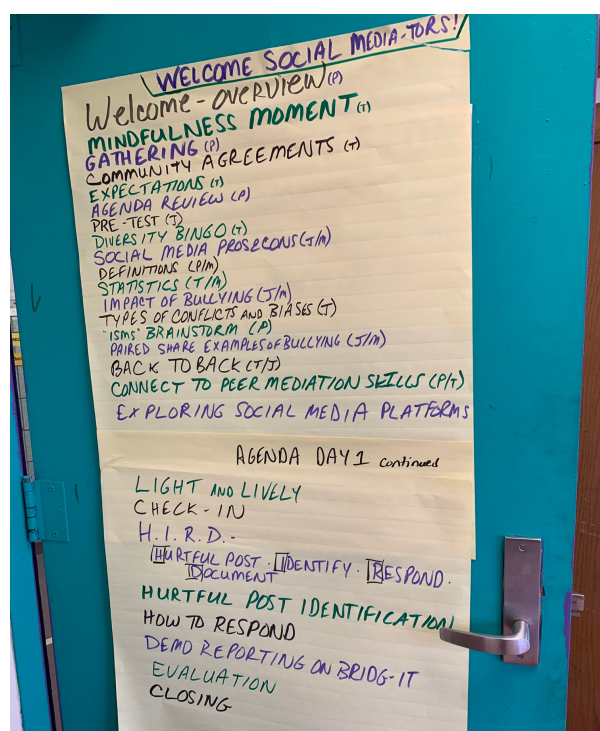 WELCOME SOCIAL MEDIA-TORS!
Welcome - OVERVIEW (P)
MINDFULNESS MOMENT (T)
GATHERING (P)
COMMUNITY AGREEMENTS (T)
EXPECTATIONS (T)
AGENDA REVIEW (P)
PRE-TEST (J)
DIVERSITY BINGO (T)
SOCIAL MEDIA PROS&CONS (T/M)
DEFINITIONS (P/M)
STATISTICS (T/M)
IMPACT OF BULLYING (J/M)
TYPES OF CONFLICTS AND BIASES (T)
'ISMS' BRAINSTORM (P)
PAIRED SHARE EXAMPLES OF BULLYING (J/M)
BACK TO BACK (T/J)
CONNECT TO PEER MEDIATION SKILLS (P/T)
EXPLORING SOCIAL MEDIA PLATFORMS
AGENDA DAY 1 continued
LIGHT AND LIVELY
CHECK-IN
H.I.R.D.-
HURTFUL POST. IDENTIFY. RESPOND.
DOCUMENT
HURTFUL POST IDENTIFICATION
HOW TO RESPOND
DEMO REPORTING ON BRIDG-IT
EVALUATION
CLOSING